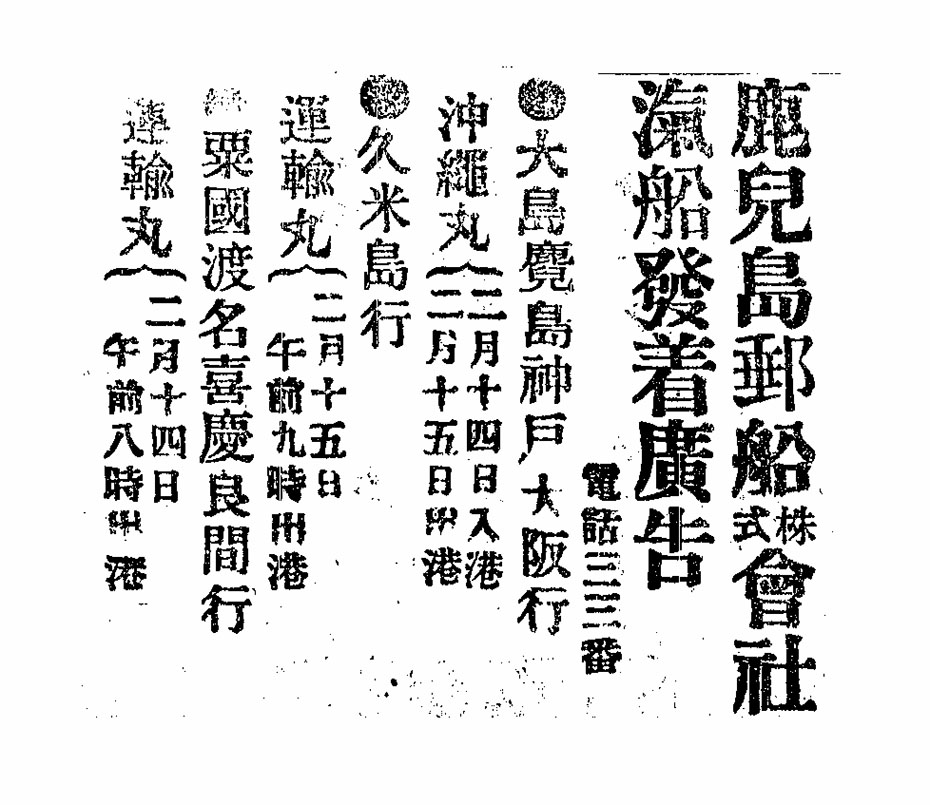 鹿兒島郵船株式會社
汽船發着廣告
電話三三番
●大島鹿島神戸大阪行
沖繩丸
二月十四日入港
二月十五日出港
●久米島行
運輸丸
二月十五日
午前九時出港
●粟國渡名喜慶良間行
運輸丸
二月十四日
午前八時出港